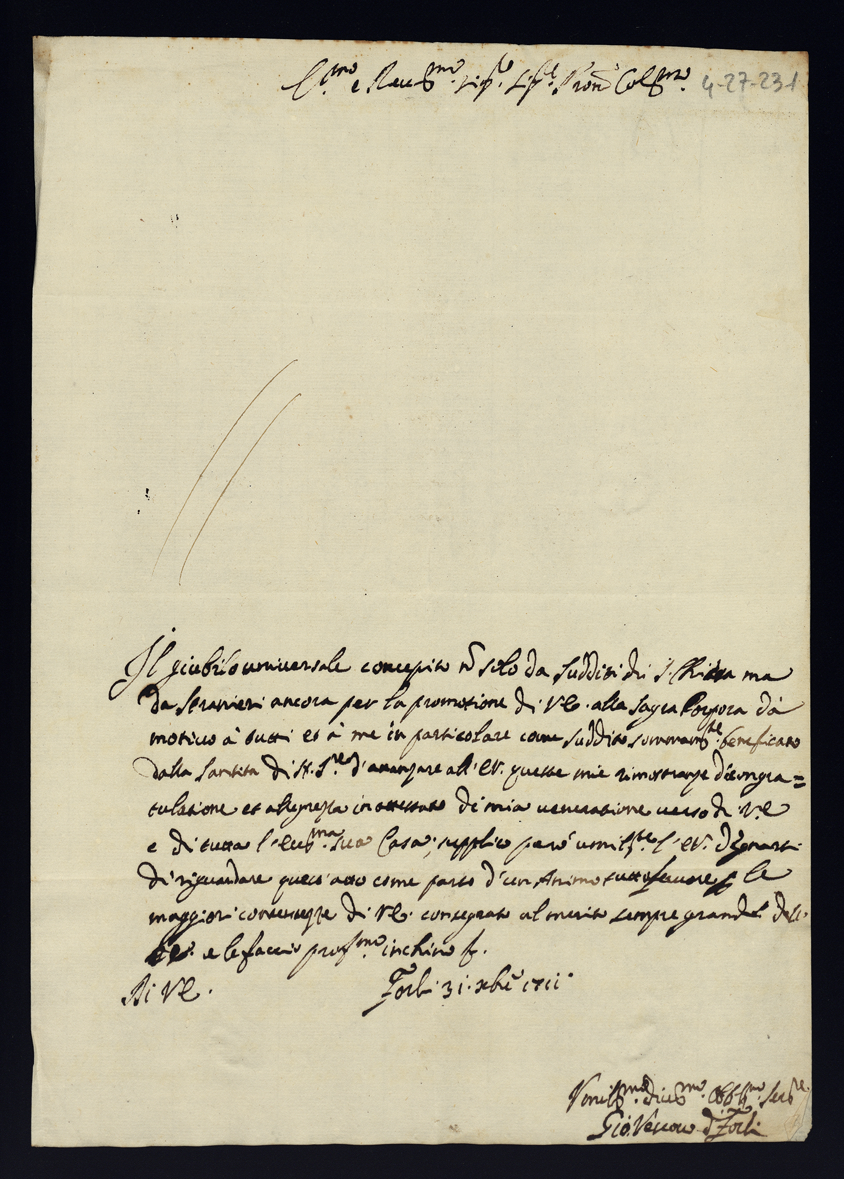 E.mo e Rev.mo Sig.r Sig.r P.ron Col.mo 4-27-231
Il giubilo universale concepito nõ solo da Sudditi di S. Chiesa ma
da Stranieri ancora per la promotione di V.E. alla Sagra Porpora dà
motivo à tutti et à me in particolare come Suddito sommam.te beneficato
dalla Santità di N. S.re d'avanzare all'E.V. queste mie rimostranze di congra=
tulatione et allegrezza in attestato di mia veneratione verso di V.E.
e di tutta l'ecc.ma sua Casa; supplico però umilm.te l'E.V. degnarsi
di riguardare quest'atto come parto d'un Animo tutto le
maggiori contentezze di V.E. consegrato al merito sempre grande dell'
E.V. e le faccio prof.mo inchino
Di V.E. Forlì 31 Xbre 1711
Umil.mo Dev.mo Obblig.mo Ser.re
Gio. Vescovo di Forlì